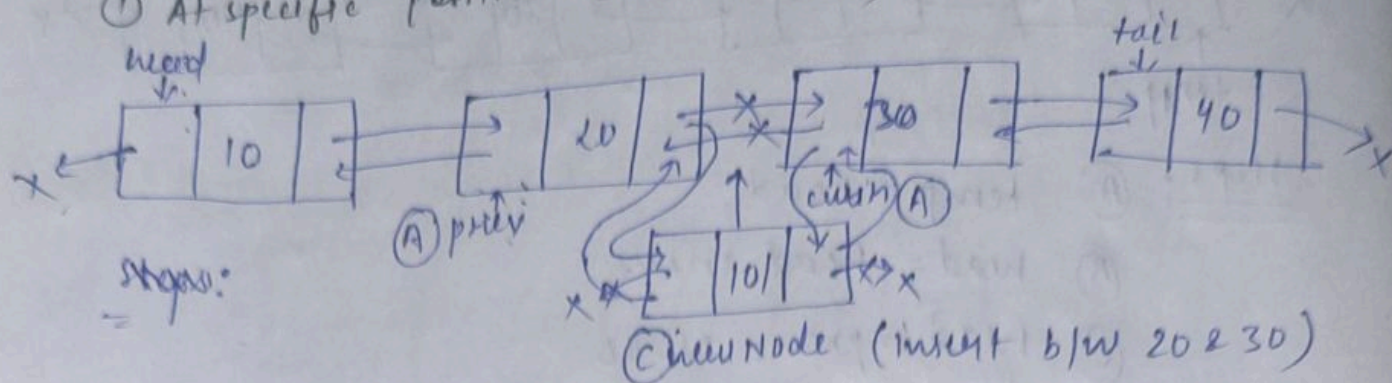 ① At specific
head
tail
10
20
30
40
Ⓐ prev
curr Ⓐ
steps:
101
Ⓒ newNode (insert b/w 20 & 30)